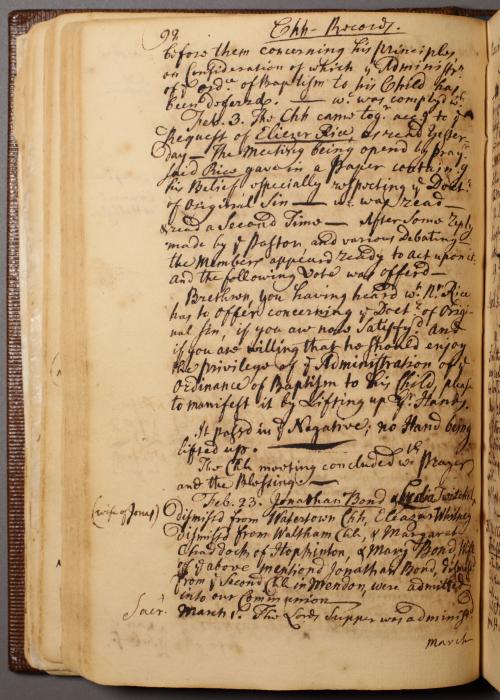 98 Chh-Records.
before them concerning his principles
on Consideration of which ye Administr.
of ye ordce. of Baptism to his Child has
been defered. — wc. was comply'd wth.
Feb. 3. The Chh came togr. accg to ye
Request of Eliezer Rice as read yester-
day — The Meeting being opend by Pray.
said Rice gave in a Paper containg
his Belief especially respecting ye Doctr.
of original Sin — wc. was read —
& read a Second Time — After Some Reply
made by ye Pastor, and various Debating
the Members appeard ready to act upon it
and the following Vote was offerd —
Brethren, you having heard wt. Mr. Rice
has to offer concerning ye Doctr. of Origi-
nal sin, if you are now Satisfy'd and
if you are willing that he should enjoy
the priviledge of ye Administration of ye
Ordinance of Baptism to his Child, please
to manifest it by Lifting up yr. Hands.
It pass'd in ye Negative; no Hand being
lifted up.
The Chh meeting concluded wth Prayer
and the Blessing —
Feb. 23. Jonathan Bond & Lydia Twitchel
(wife of Jonas) dismissd from Watertown Chh, Eleazar Whitney
dismissd from Waltham Chh, & Margaret
Chaddock of Hopkinton, & Mary Bond, Wife
of ye above mentiond Jonathan Bond, dismissd
from ye Second Chh in Mendon, were admitted
into our Communion
Sacr. March 1. The Lords Supper was administ.
March